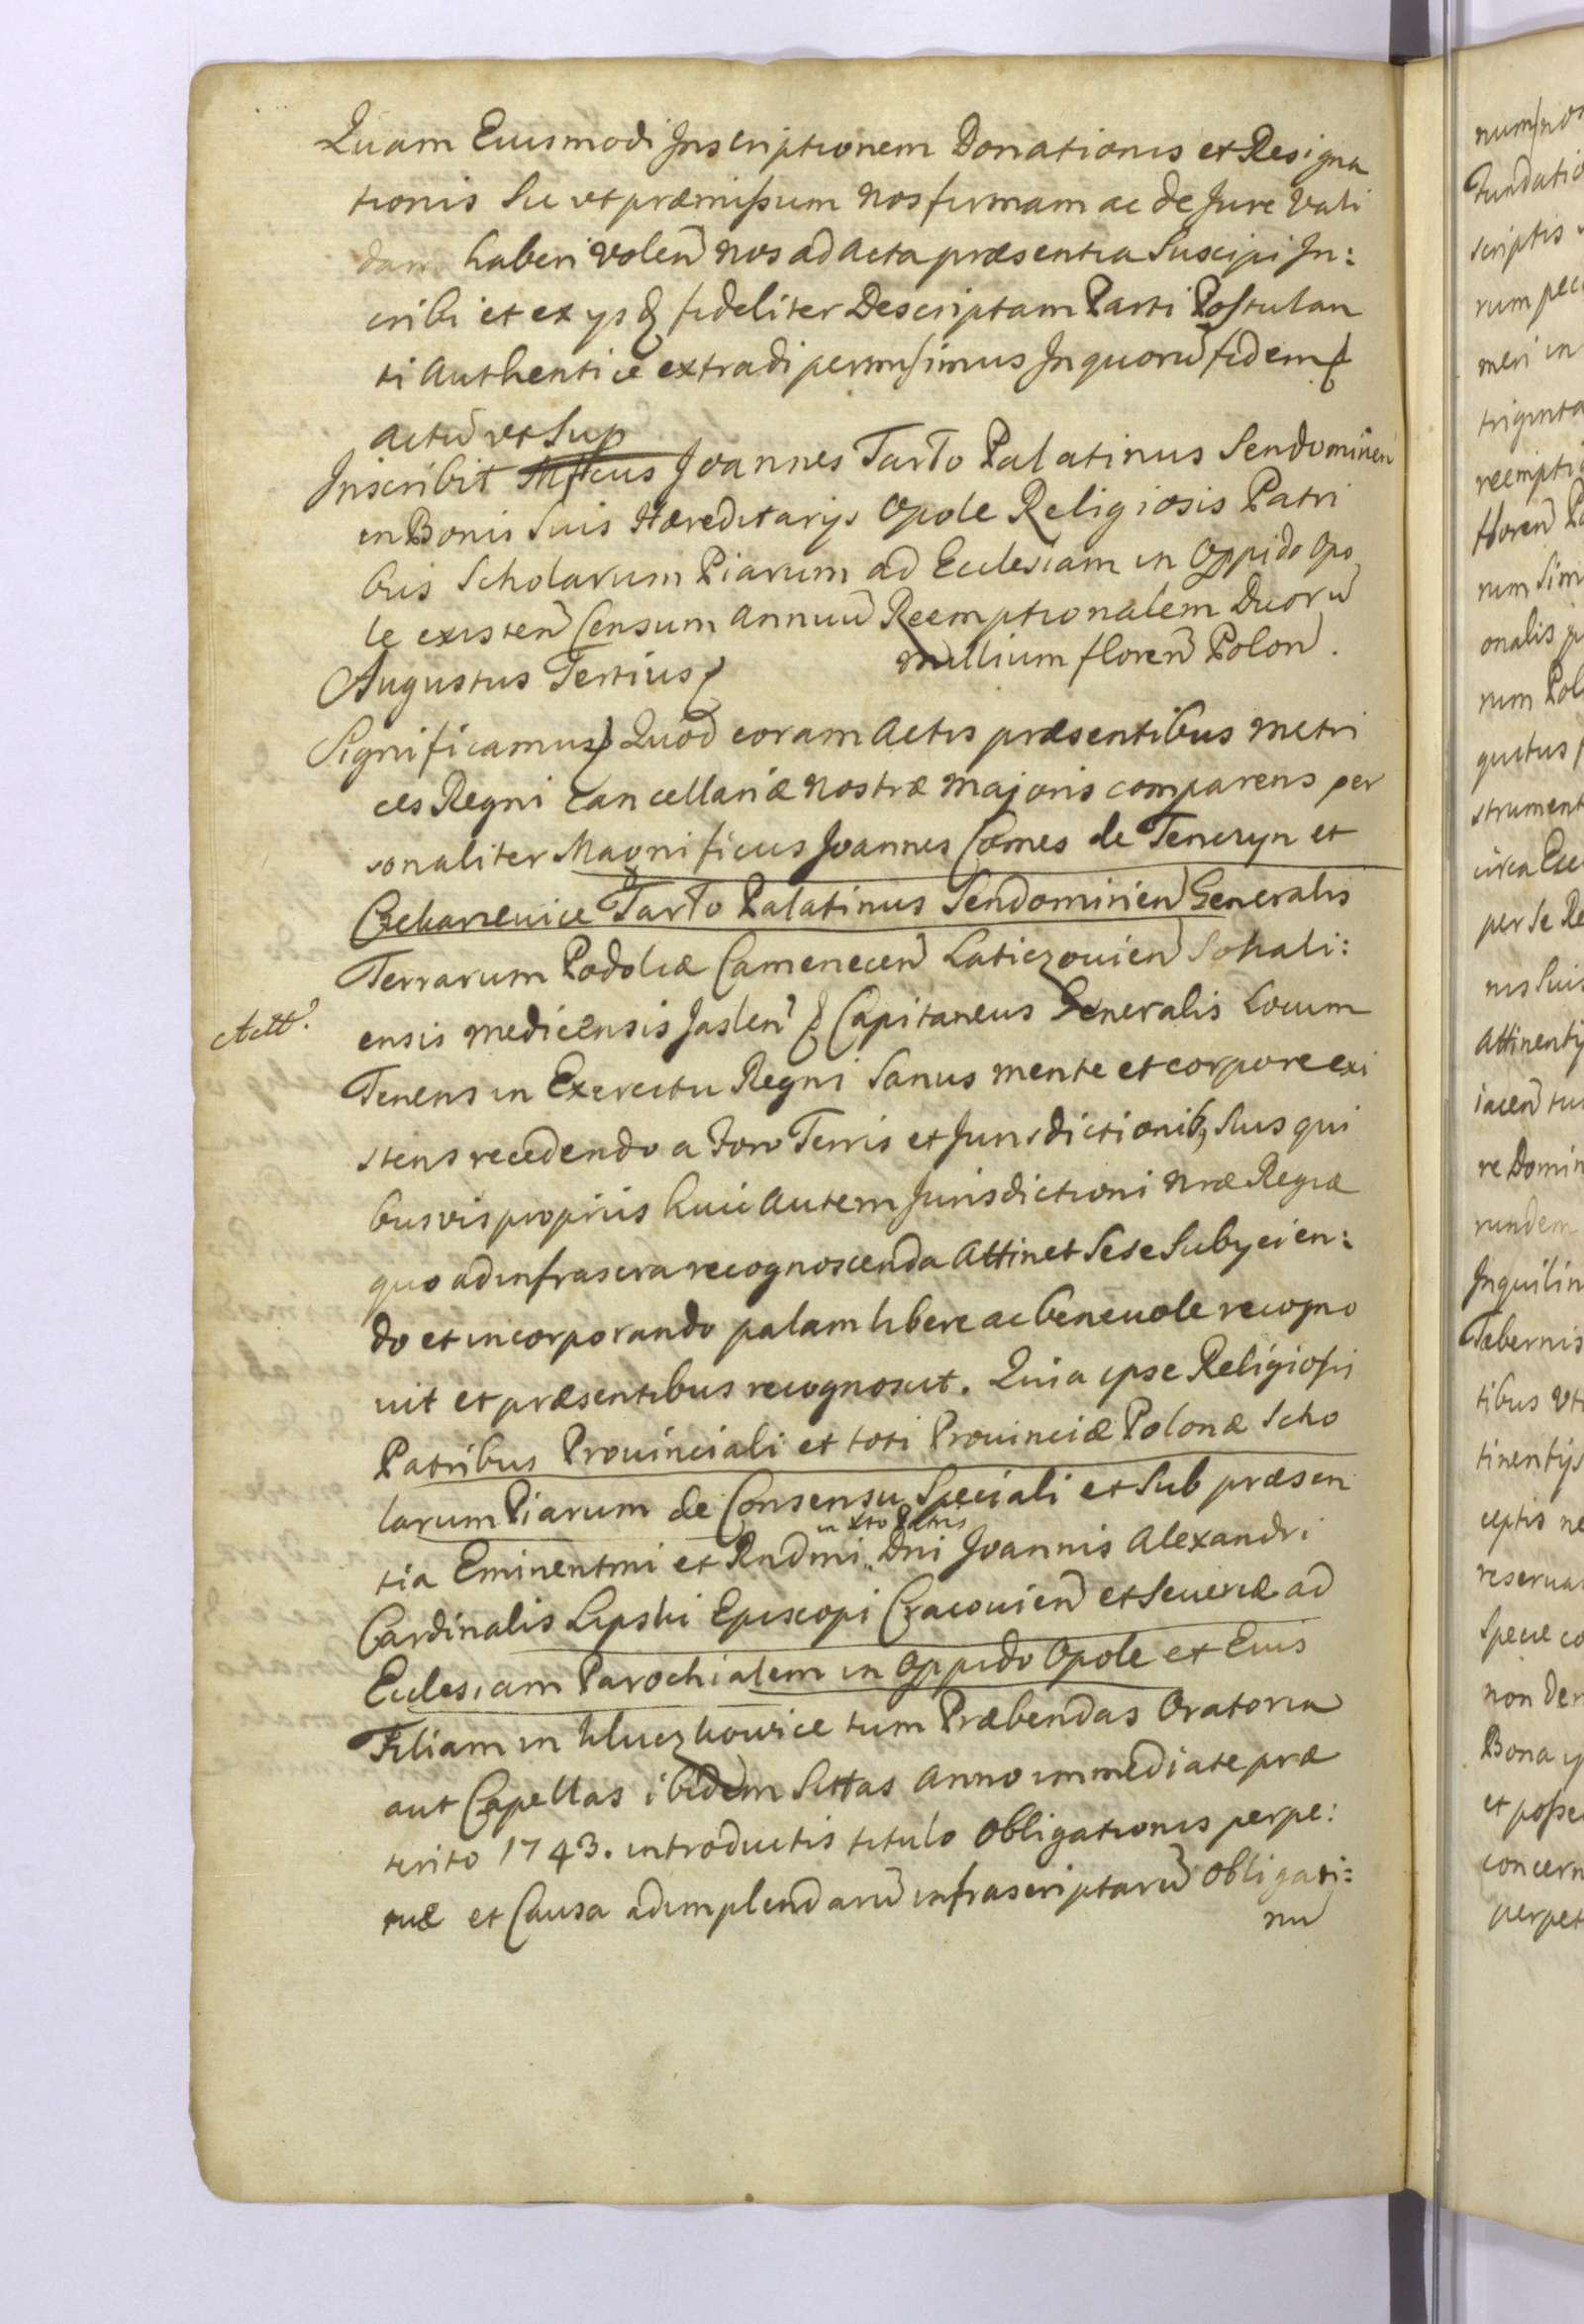 Quam Eiusmodi Inscriptionem Donationis et Resigna
tionis Su vt præmissum nos firmam ac de Jure Vali
dam haberi volen nos ad Acta præsentia Suscipi In:
cribi et ex ys fideliter Descriptam Parti Postulan
ti Authentice extradi permisimus In quoru fidem
actu vt Sup
Inscribit Mfcus Joannes Tarło Palatinus Sendomirien
in Bonis Suis Hæreditarijs Opole Religiosis Patri
bus Scholarum Piarum ad Ecclesiam in Oppido Opo
le existen Censum Annuu Reemptionalem Duoru
millium floren Polon.
Augustus Tertius
Significamus Quod coram Actis præsentibus Metri
ces Regni Cancellariæ nostræ Majoris comparens per
sonaliter Magnificus Joannes Comes de Tenczyn et
Czekarzewice Tarło Palatinus Sendomirien Generalis
Terrarum Podoliæ Camenecen Laticzouien Sokali:
ensis Medicensis Jaslen Capitaneus Generalis Locum
Tenens in Exercitu Regni Sanus mente et corpore exi
stens recedendo a Foro Terris et Jurisdictionib, Suis qui
busvis propriis huic Autem Jurisdictioni nræ Regiæ
quo ad infrascra recognoscenda Attinet Sese Subijcien:
do et incorporando palam libere ac beneuole recogno
uit et præsentibus recognoscit. Quia ipse Religiosis
Patribus Prouinciali et toti Prouinciæ Polonæ Scho
larum Piarum de Consensu Speciali et Sub præsen
in Xto Patris
tia Eminentmi et Rndmi Dni Joannis Alexandri
Cardinalis Lipski Episcopi Cracouien et Seueriæ ad
Ecclesiam Parochialem in Oppido Opole et Eius
Filiam in Kluczkowice tum Præbendas Oratoria
aut Capellas ibidem Sittas Anno immediate præ
terito 1743. introductis titulo Obligationis perpe:
tuæ et Causa adimplendaru infrascriptaru Obligati:
nu